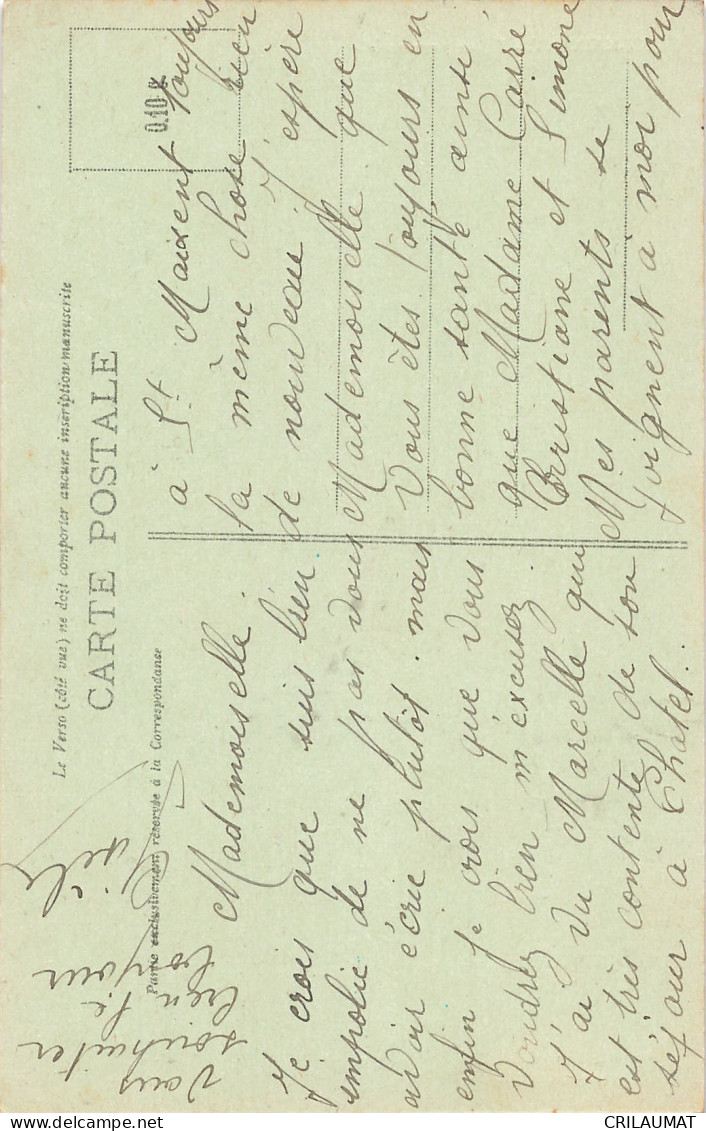 Le Verso (côté vue) ne doit comporter aucune inscription manuscrite
CARTE POSTALE
Partie exclusivement réservée à la Correspondanse
0.10 x
Mademoiselle.
Je crois que suis bien
impolie de ne pas vous
avoir écrie plutôt. mais
enfin je crois que vous
voudrez bien m'excusez.
J'ai vu Marcelle qui
est très contente de son
séjour à Chatel.
à St Maixent toujours
la même chose rien
de nouveau. J'espère
Mademoiselle que
vous êtes toujours en
bonne santé ainsi
que Madame Carré.
Christiane et Simone
Mes parents se
joignent à moi pour
vous
souhaiter
bien le
bonjour
CRILAUMAT